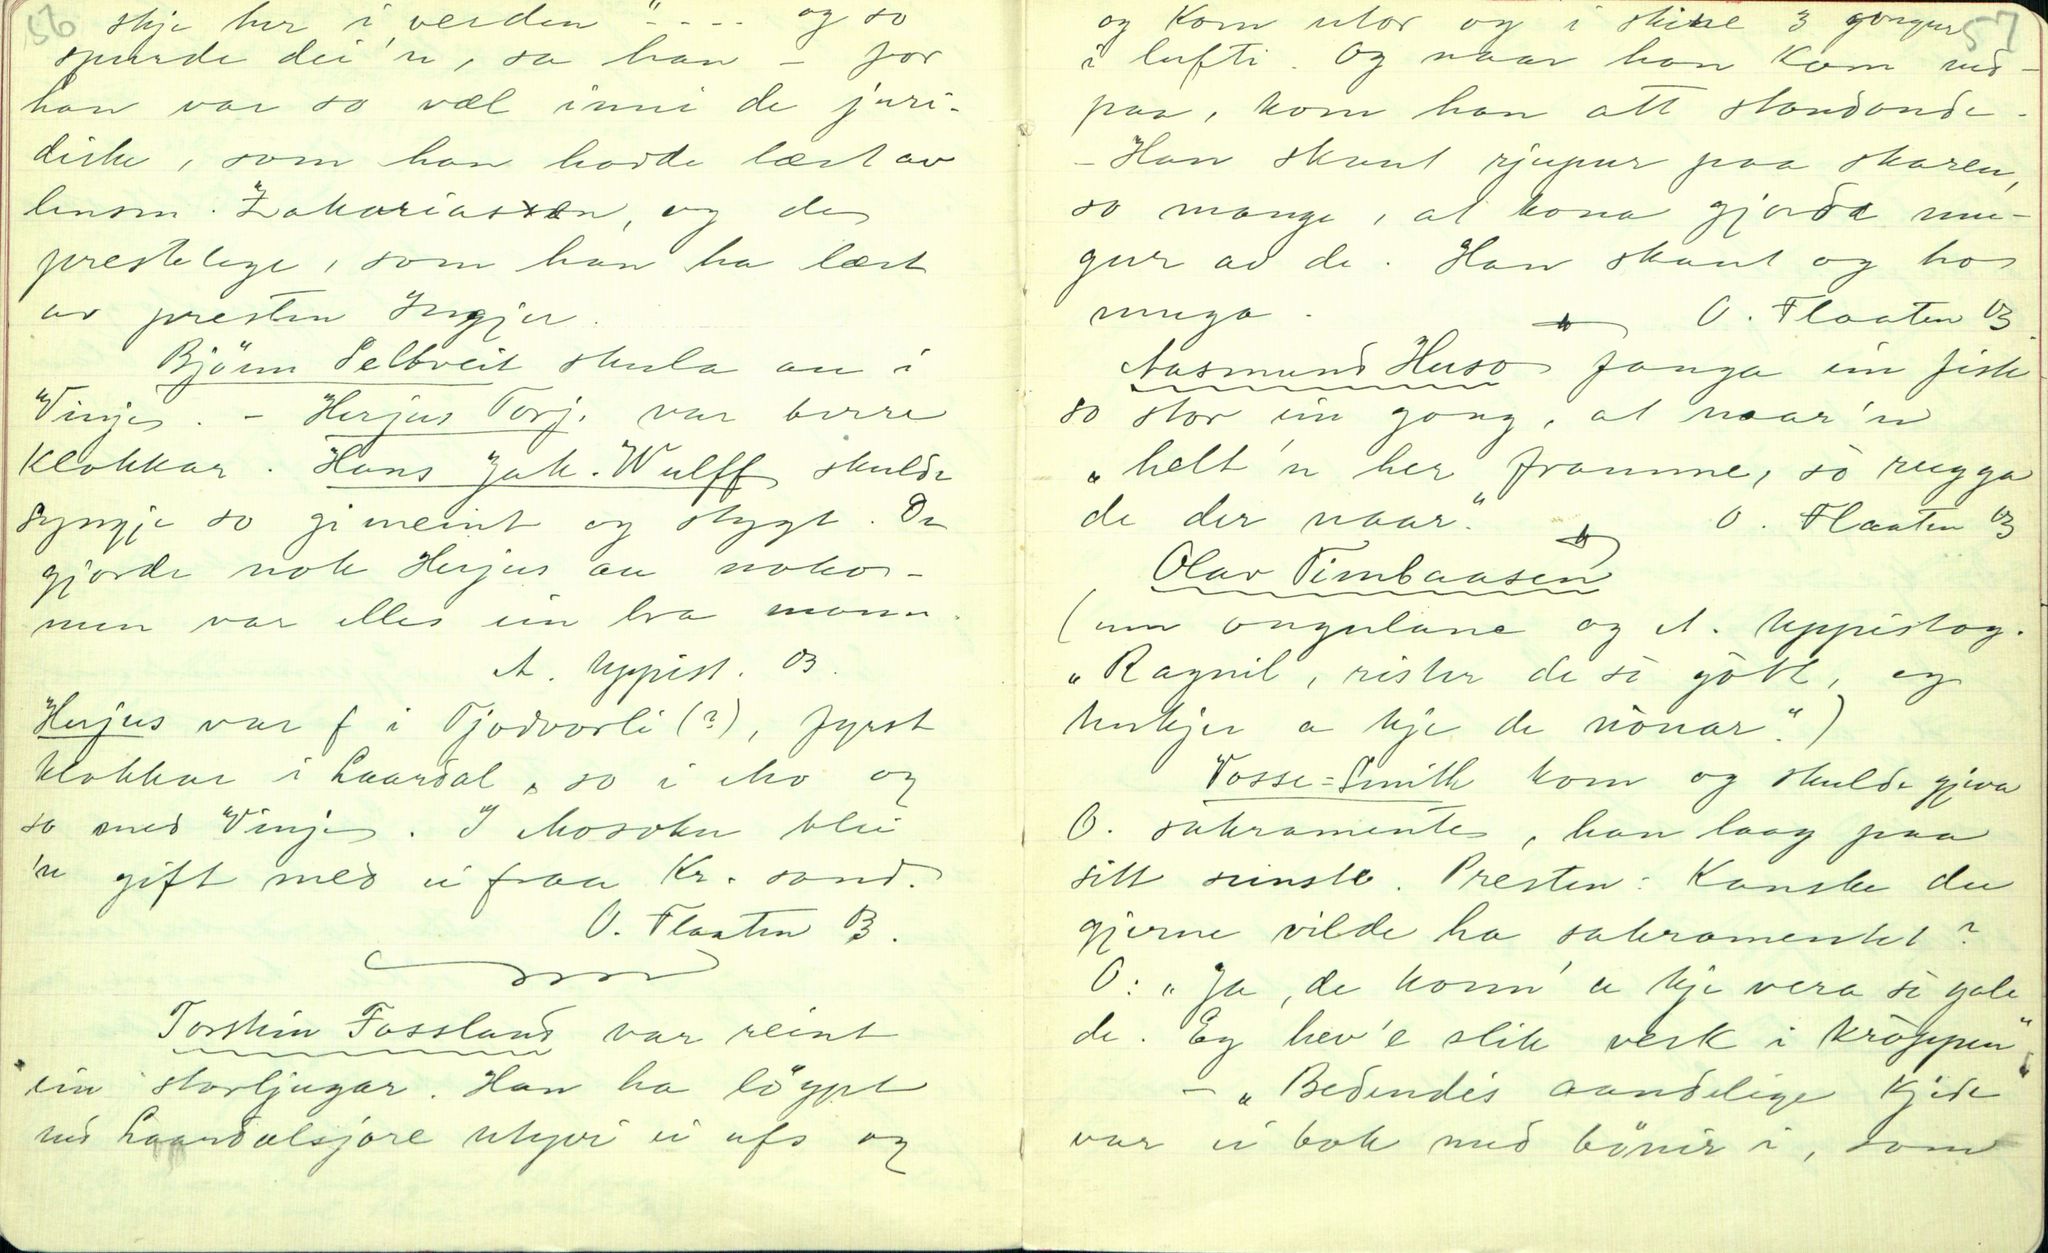 56
skje her i verden" - - - - og so
spurde dei 'n, sa han - for
han var so væl inni de juri-
diske, som han hadde lært av
lensm. Zakariassen, og de
prestelege, som han ha lært
av presten Ingjer.
Björn Selbveit skula au i
Vinje. - Herjus Torj. var berre
klokkar. Hans Jak. Wulff skulde
syngje so gimeint og stygt. De
gjorde nok Herjus au noko -
men var elles ein bra mann.
A. Uppist. 03.
Herjus var f i Tjodvorli (?), fyrst
klokkar i Laardal, so i Mo og
so med Vinje. I Mosokn blei
'n gift med ei fraa Kr. sand.
O. Flaaten 03.
Torstein Fossland var reint
ein storljugar. Han ha löypt
ned Laardalsjore utyvi ei ufs og
57
og kom utor og i skiine 3 gongur
i lufti. Og naar han kom ned-
paa, kom han att standande.
- Han skaut rjupur paa skaren,
so mange, at kona gjorde mu-
gur av de. Han skaut og ho
muga. O. Flaaten 03.
Aasmund Huso fanga ein fisk
so stor ein gong, at naar 'n
"helt 'n her framme, so rugga
de der naar." O. Flaaten 03
Olav Timbaasen
(um ongulane og A. Uppistog.
"Ragnil, rister de si gôtt, eg
kje de nônar.")
Vosse=Smith kom og skulde gjeva
O. sakramente, han laag paa
sitt seinste. Presten: Kanske du
gjerne vilde ha sakramentet?
O: "Ja, de konn' a kje vera si gale
de. Eg hev 'e slik verk i kròppen"
- "Bedendes aandelige Kjede"
var ei bok med bönir i, som